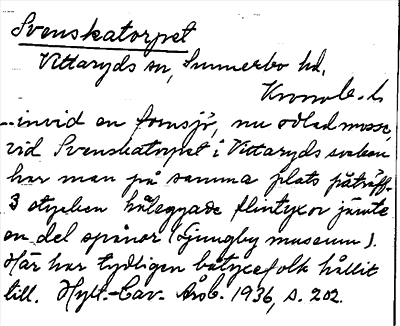 Svenskatorpet
Vittaryds sn, Sunnerbo hd.
Kronob. l.
invid en fornsjö, nu odlad mosse,
vid Svenskatorpet i Vittaryds socken
har man på samma plats påträff.
3 stycken håleggade flintyxor jämte
en del spånor (Ljungby museum).
Här har tydligen båtyxefolk hållit
till. Hylt.-Cav. Årsb. 1936, s. 202.